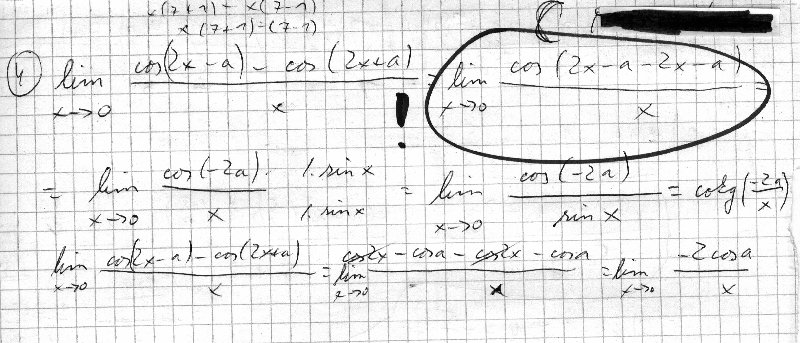 x(7+1) - x(7-1)
x(7+1)-(7-1)
4 lim x→0 cos(2x-a) - cos(2x+a) / x = lim x→0 cos(2x-a-2x-a) / x =
!
= lim x→0 cos(-2a) / x · 1·sin x / 1·sin x = lim x→0 cos(-2a) / sin x = cotg(-2a/x)
lim x→0 cos(2x-a) - cos(2x+a) / x = lim x→0 cos2x - cosa - cos2x - cosa / x = lim x→0 -2cosa / x